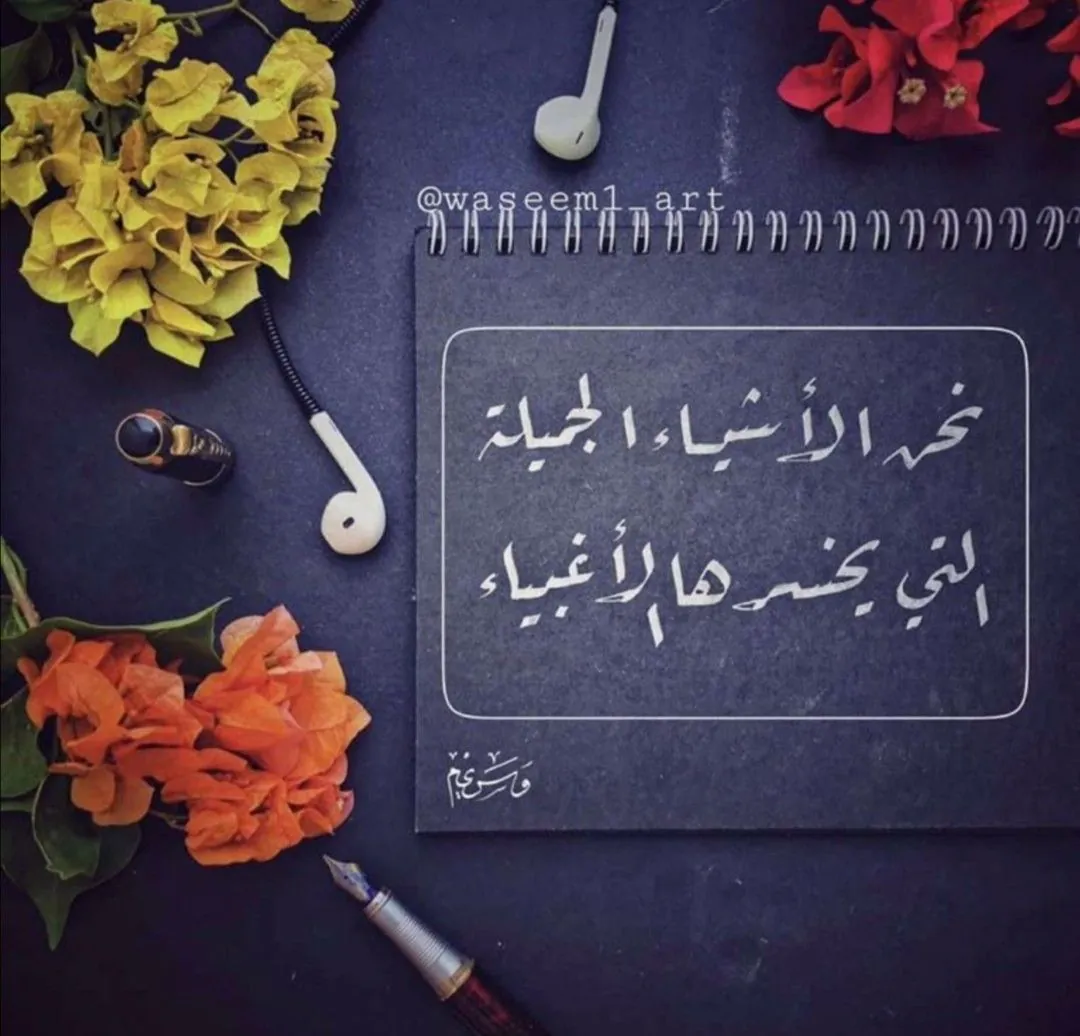 @waseem1_art
نحن الأشياء الجميلة
التي يخسرها الأغبياء